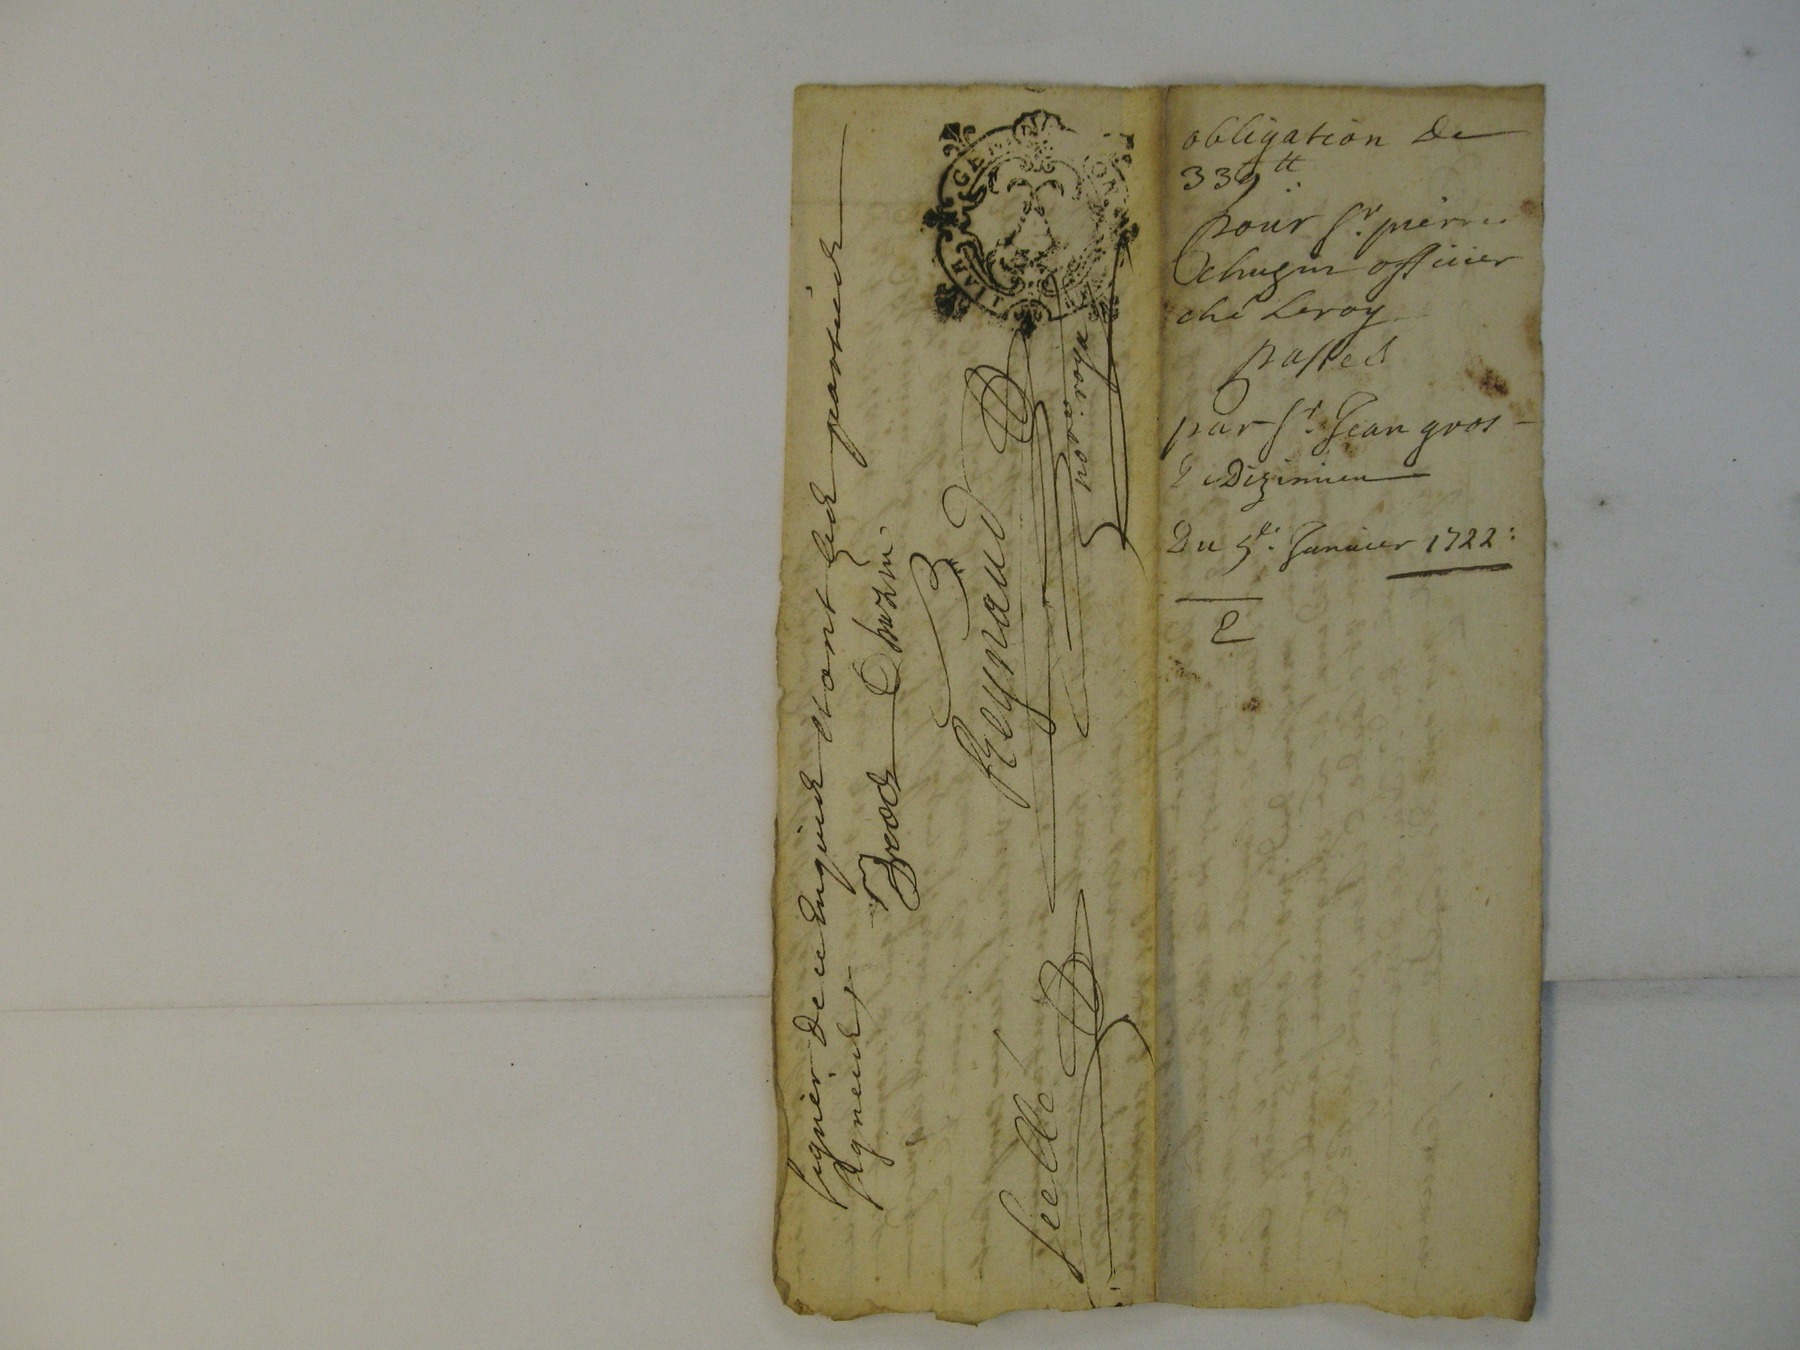 obligation de
339 tt
pour Sr. pierre
Chuzin officier
ché Leroy
passed
par Sr. Jean gros
Dizimieu
Du 5e. Januier 1722:
signer de ce Enquis et ont Les parties
signeux
Brod Chuzin
Reynaud
no.re roya
scellé
GENE